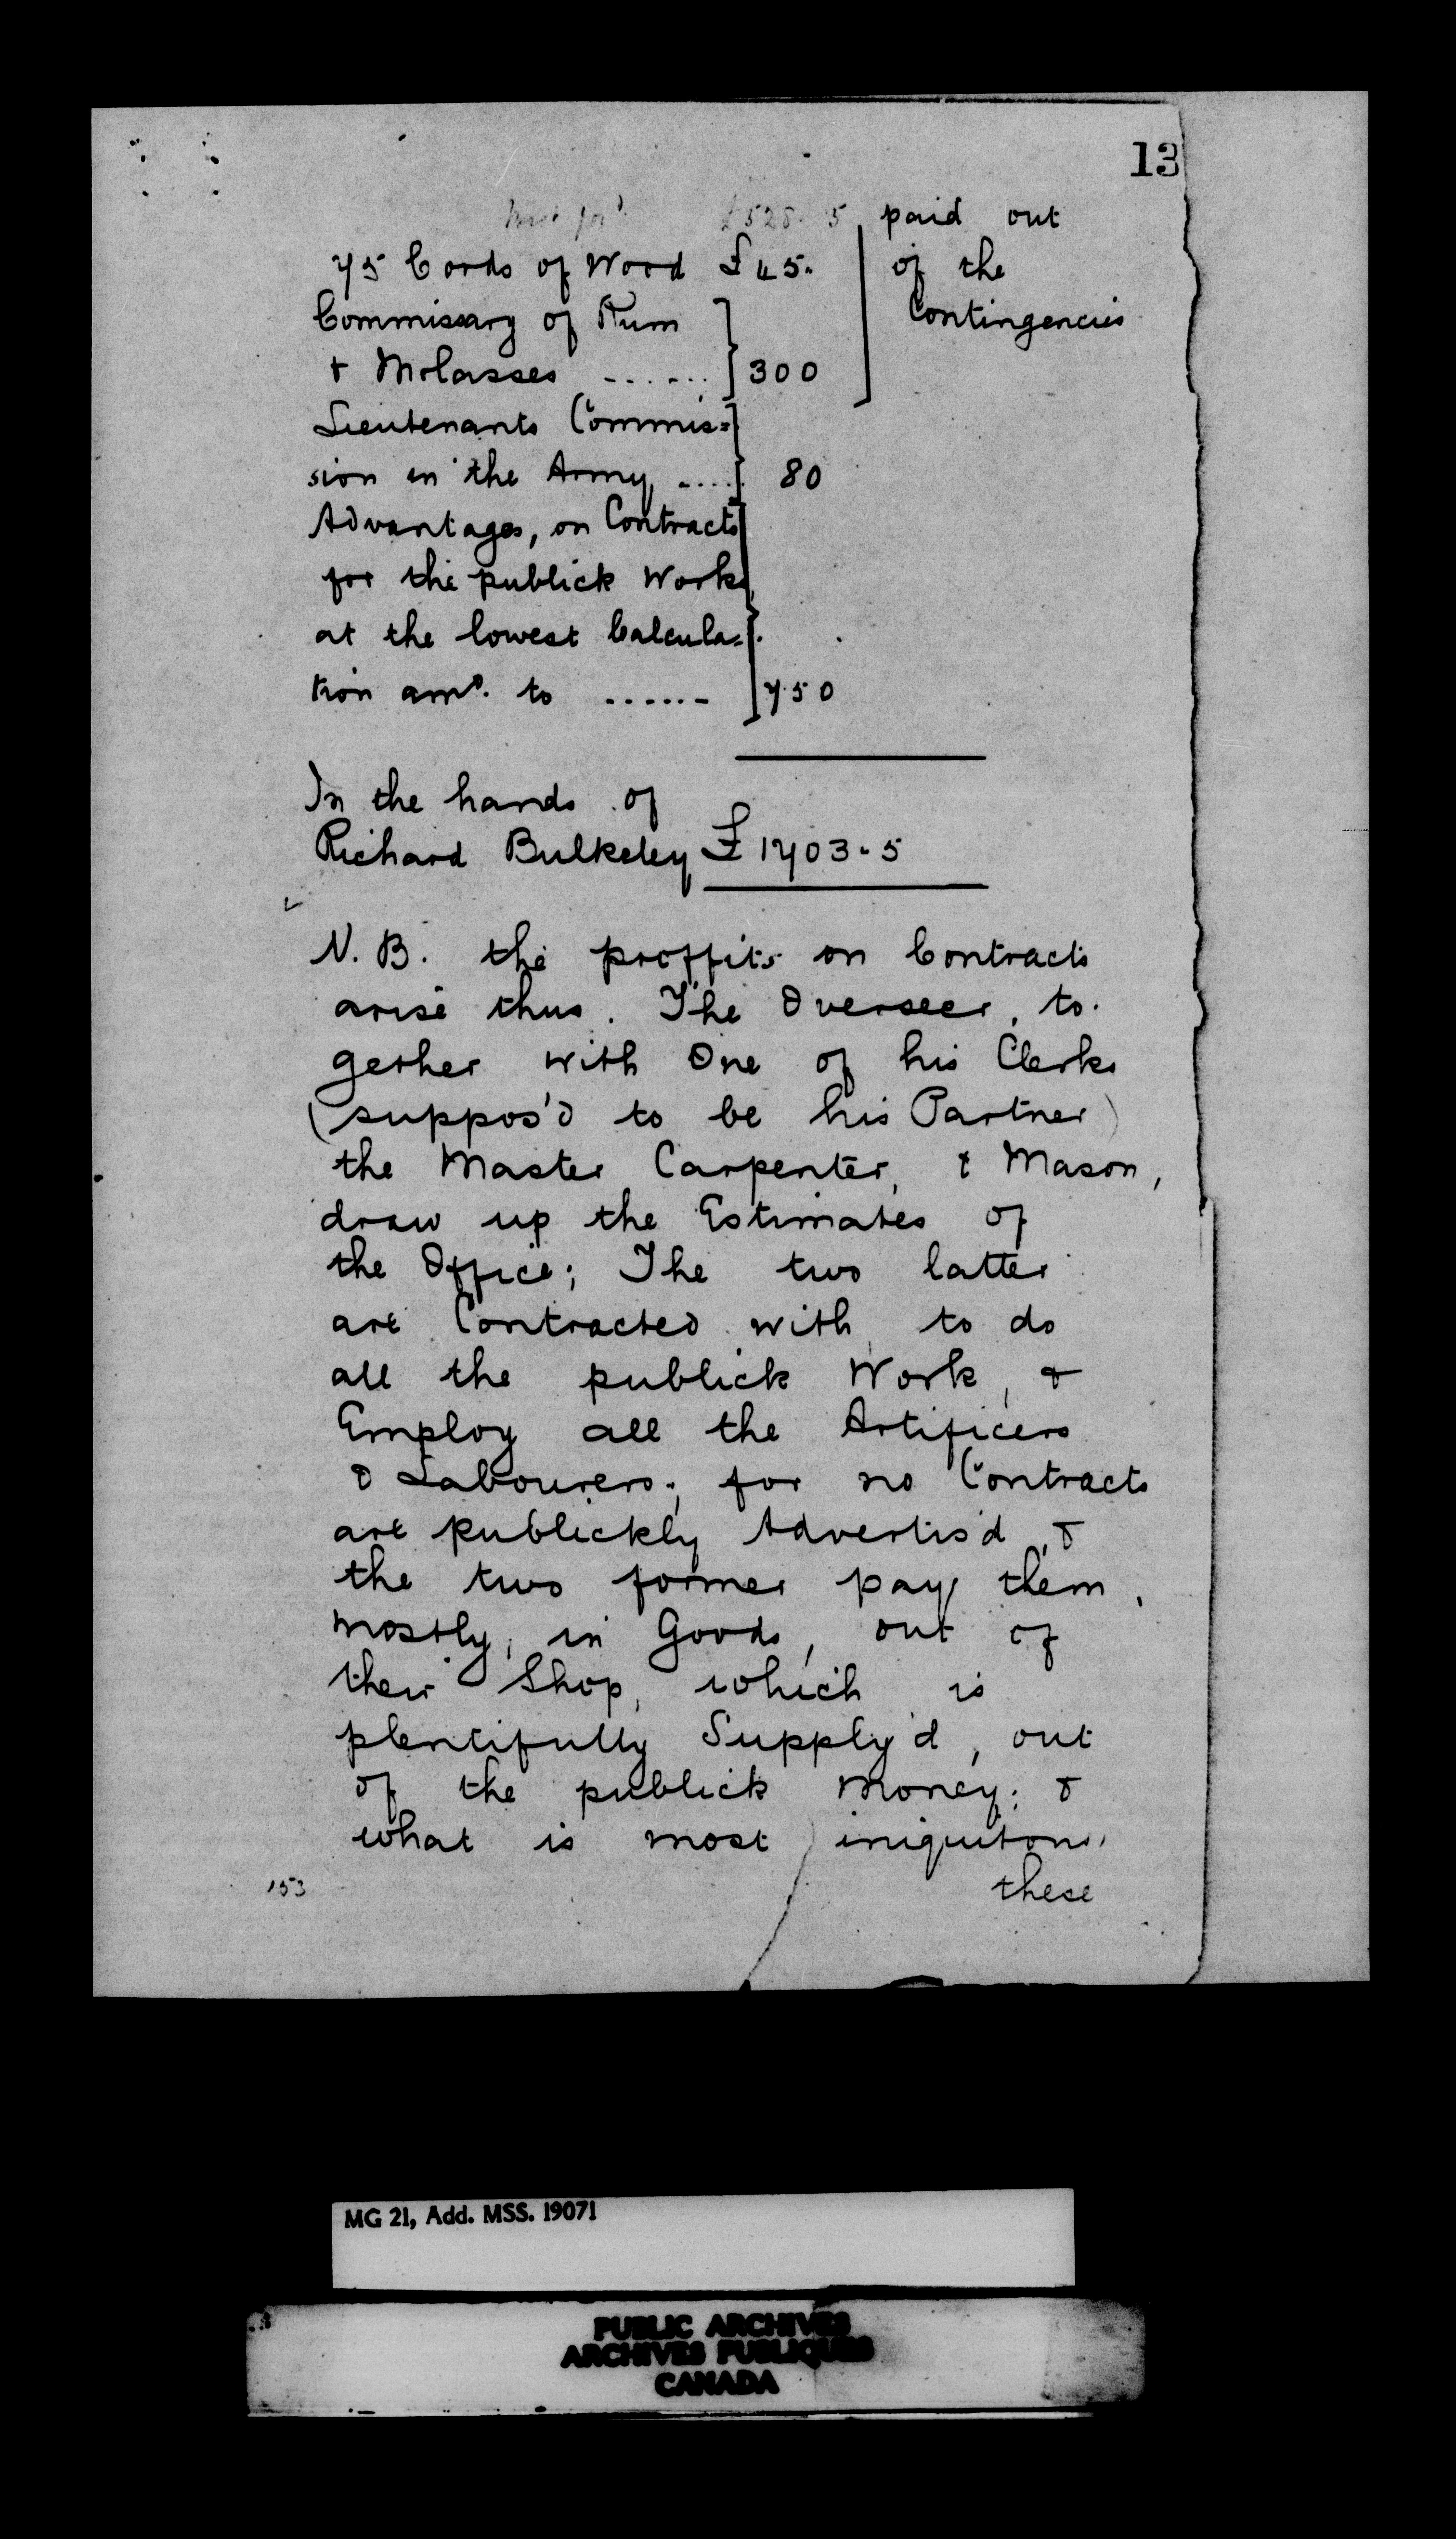 13
£528. 5 paid out
75 Cords of Wood £45. of the
Commissary of Rum Contingencies
& Molasses ...... 300
Lieutenants Commis=
sion in the Army .... 80
Advantages, on Contracts
for the publick Works
at the lowest Calcula=
tion am.t to ...... 750
In the hands of
Richard Bulkeley £1703.5
N. B. the proffits on Contracts
arise thus. The Overseer, to.
gether with One of his Clerks
(suppos'd to be his Partner)
the Master Carpenter, & Mason,
draw up the Estimates of
the Office; The two latter
are Contracted with to do
all the publick Work, &
Employ all the Artificers
& Labourers; for no Contracts
are publickly Advertis'd, &
the two former pay them,
mostly, in Goods, out of
their Shop, which is
plentifully Supply'd, out
of the publick Money; &
what is most iniquitous,
153 these
MG 21, Add. MSS. 19071
PUBLIC ARCHIVES
ARCHIVES PUBLIQUES
CANADA